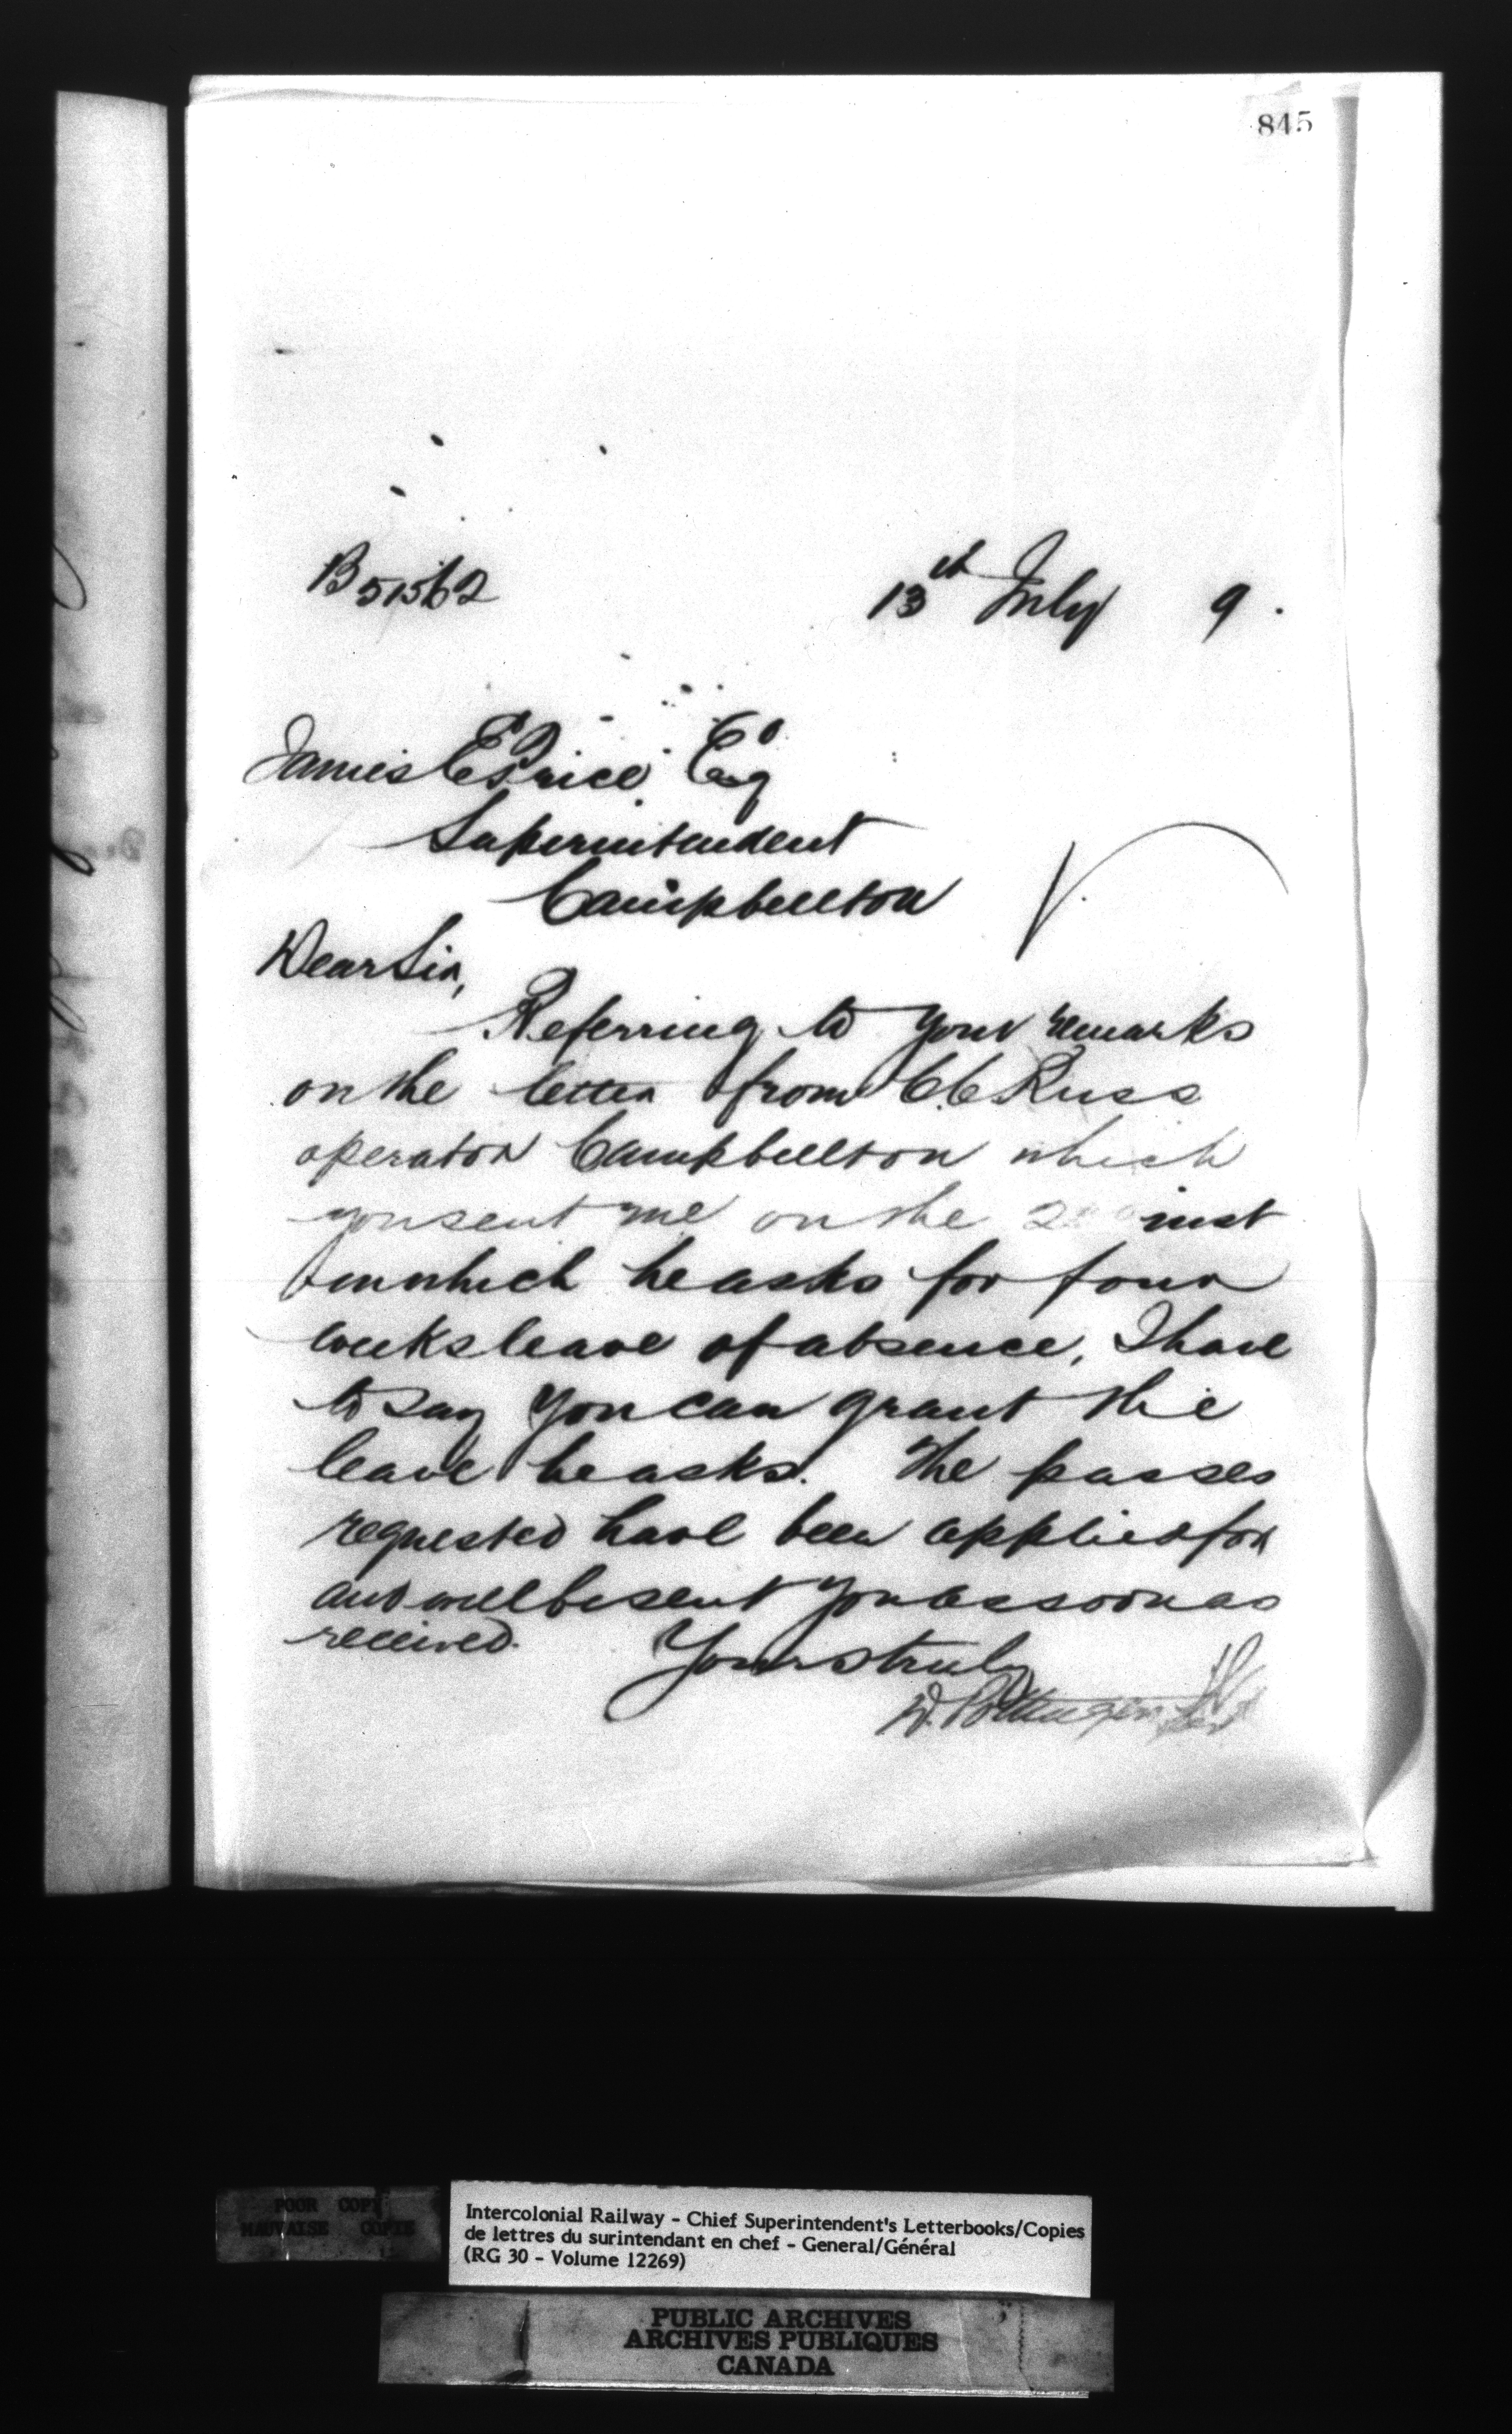 845
B 51562
13th July 9.
James E Price Esq
Superintendent
Campbellton
Dear Sir,
Referring to your remarks
on the letter from C.C. Russ
operator Campbellton which
you sent me on the inst
in which he asks for four
weeks leave of absence, I have
to say you can grant the
leave he asks. The passes
requested have been applied for
and will be sent you as soon as
received.
Yours truly
D. Pottinger
POOR COPY
MAUVAISE COPIE
Intercolonial Railway - Chief Superintendent's Letterbooks/Copies
de lettres du surintendant en chef - General/Général
(RG 30 - Volume 12269)
PUBLIC ARCHIVES
ARCHIVES PUBLIQUES
CANADA